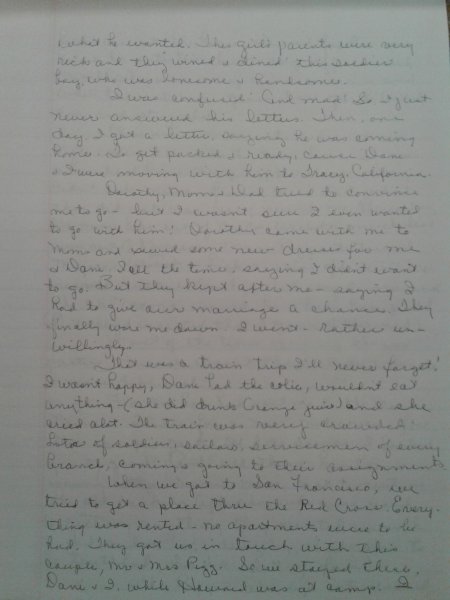 what he wanted. This girl's parents were very
rich and they wined & dined this soldier
boy, who was lonesome & handsome.
I was confused! And mad! So I just
never answered his letters. Then, one
day, I got a letter, saying he was coming
home. To get packed & ready, cause Dane
& I were moving with him to Tracy, California.
Dorothy, Mom & Dad tried to convince
me to go - but I wasn't sure I even wanted
to go with him! Dorothy came with me to
Moms and sewed some new dresses for me
& Dane. I all the time, saying I didn't want
to go. But they kept after me - saying I
had to give our marriage a chance. They
finally wore me down. I went - rather un-
willingly.
That was a train trip I'll never forget!
I wasn't happy, Dane had the colic, wouldn't eat
anything - (she did drink Orange juice) and she
cried alot. The train was very crowded.
Lots of soldiers, sailors, servicemen of every
branch, coming & going to their assignments.
When we got to San Francisco, we
tried to get a place thru the Red Cross. Every-
thing was rented - no apartments were to be
had. They got us in touch with this
couple, Mr & Mrs Pizz. So we stayed there,
Dane & I, while Howard was at camp. I